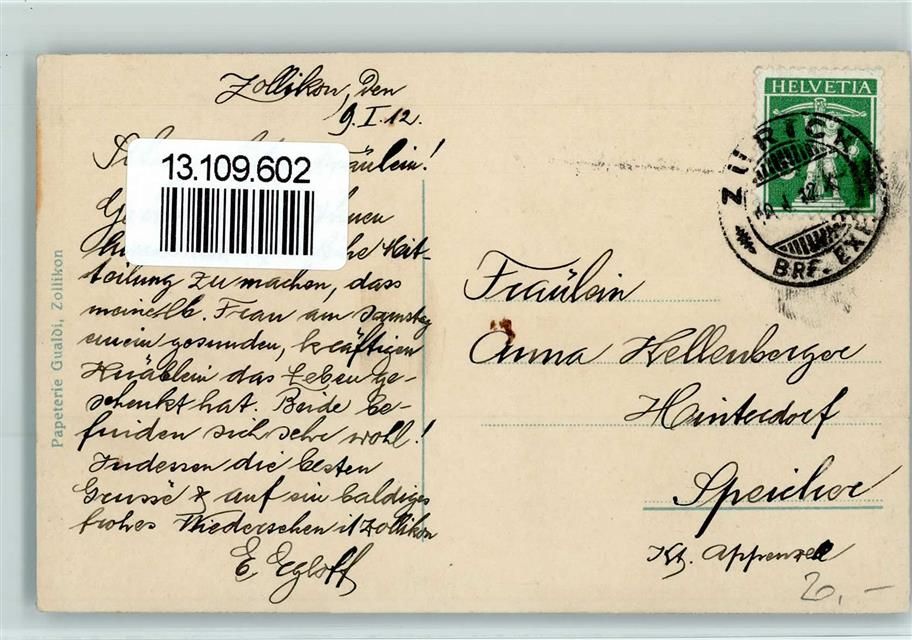 Zollikon, Den
9. I. 12.
äulein!
13.109.602
hnen
he Mit-
teilung zu machen, dass
meine lb. Frau am Samstag
einem gesunden, kräftigen
Knäblein das Leben ge-
schenkt hat. Beide be-
finden sich sehr wohl!
Indessen die besten
Grüsse & auf ein baldiges
frohes Wiedersehen i/Zollikon
E Egloff
Papeterie Gualdi, Zollikon
HELVETIA
ZÜRICH
BRF. EXP.
Fräulein
Anna Hellenberger
Hinterdorf
Speicher
Kt. Appenzell
20,-